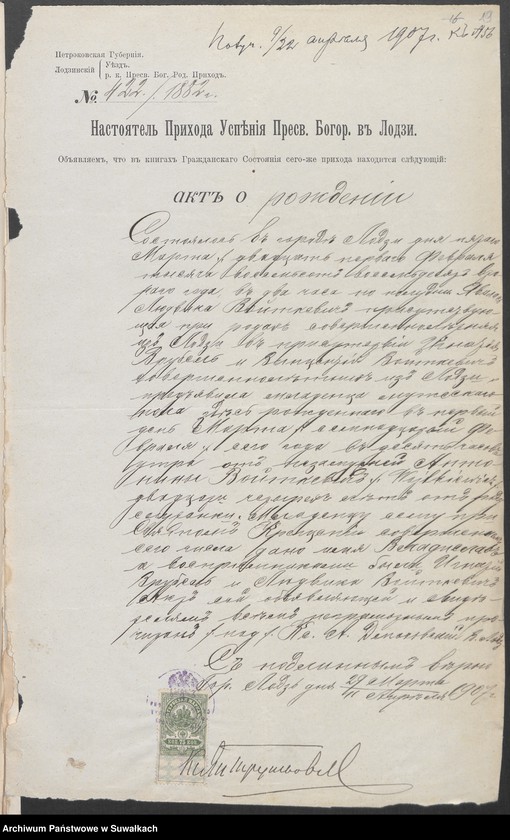 Получ. 9/22 апрѣля 1907 г.
Петроковская Губернія.
Лодзинскій Уѣздъ.
р. к. Пресв. Бог. Род. Приходъ.
№. 422 / 1882 г.
Настоятель Прихода Успѣнія Пресв. Богор. въ Лодзи.
Объявляемъ, что въ книгахъ Гражданскаго Состоянія сего-же прихода находится слѣдующій:
АКТЪ О рожденіи
Состоялось въ городѣ Лодзи дня пятаго
Марта / двадцать перваго Февраля
тысяча восемьсотъ восемьдесятъ вто-
раго года, въ два часа по полудни. Явилась
Людвика Войткевичъ присутствую-
щая при родахъ совершеннолѣтняя
изъ Лодзи въ присутствіи Игнатія
Врубель и Викентія Войткевичъ
совершеннолѣтнихъ изъ Лодзи и
предъявила младенца мужескаго
пола рожденнаго въ первый
день Марта / семнадцатый Фе-
враля / сего года въ десять часовъ
утра отъ незамужней Анто-
нины Войткевичъ
двадцати четырехъ лѣтъ отъ роду
служанки. Младенцу сему при
Святомъ Крещеніи совершенномъ
сего числа дано имя Владиславъ
а воспріемниками были Игнатій
Врубель и Людвика Войткевичъ
Актъ сей объявляющей и свидѣ-
телямъ всѣмъ неграмотнымъ про-
читанъ / под /
Съ подлиннымъ вѣрно
Гор. Лодзь дня 29 Марта / 11 Апрѣля 1907 г.
Archiwum Państwowe w Suwałkach